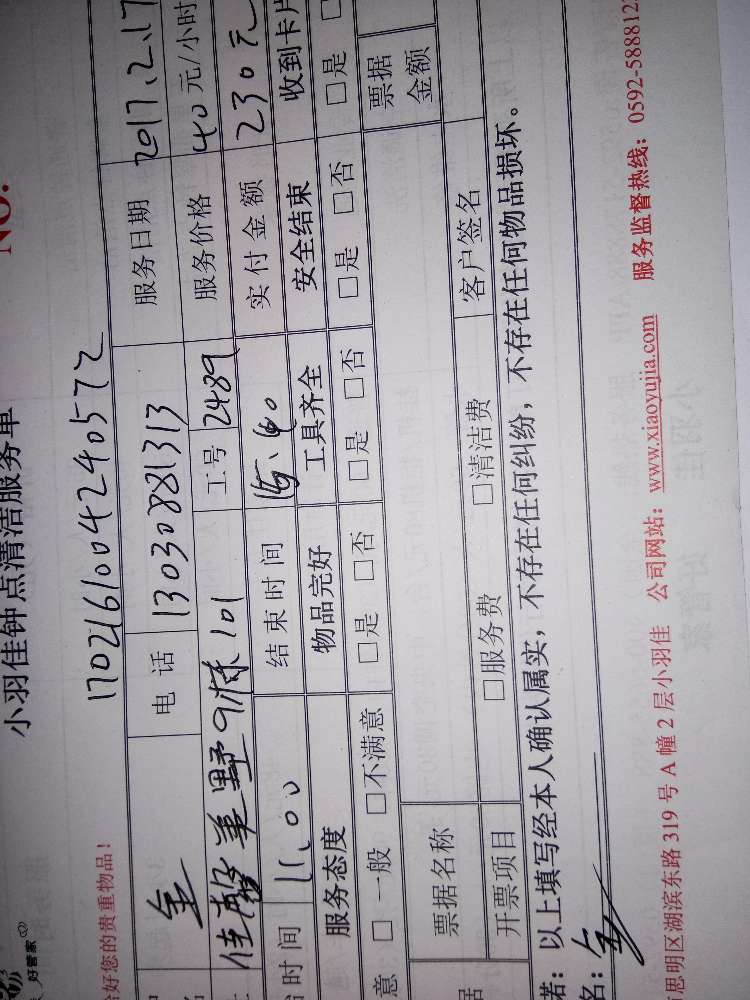 NO.
小羽佳钟点清洁服务单
好管家
1702161004240572
好您的贵重物品!
金 电话 13030881313 服务日期 2017.2.17
美野9栋101 工号 2489 服务价格 40元/小时
时间 11.00 结束时间 实付金额 230元
服务态度 物品完好 工具齐全 安全结束 收到卡片
意 □一般 □不满意 □是 □否 □是 □否 □是 □否 □是
票据名称 票据金额
开票项目 □服务费 □清洁费 客户签名
诺:以上填写经本人确认属实,不存在任何纠纷,不存在任何物品损坏。
名:金
思明区湖滨东路319号A幢2层小羽佳 公司网站:www.xiaoyujia.com 服务监督热线:0592-588812